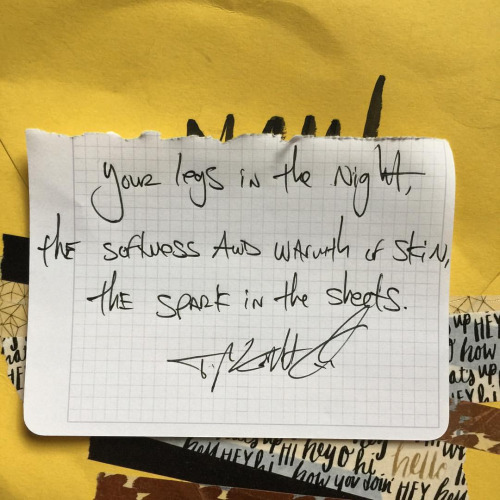 your legs in the night,
the softness and warmth of skin,
the spark in the sheets.
up HEY
how
ats up
HEY hi
HI hey o hi hello
hey HEY hi how you doin' HEY hey